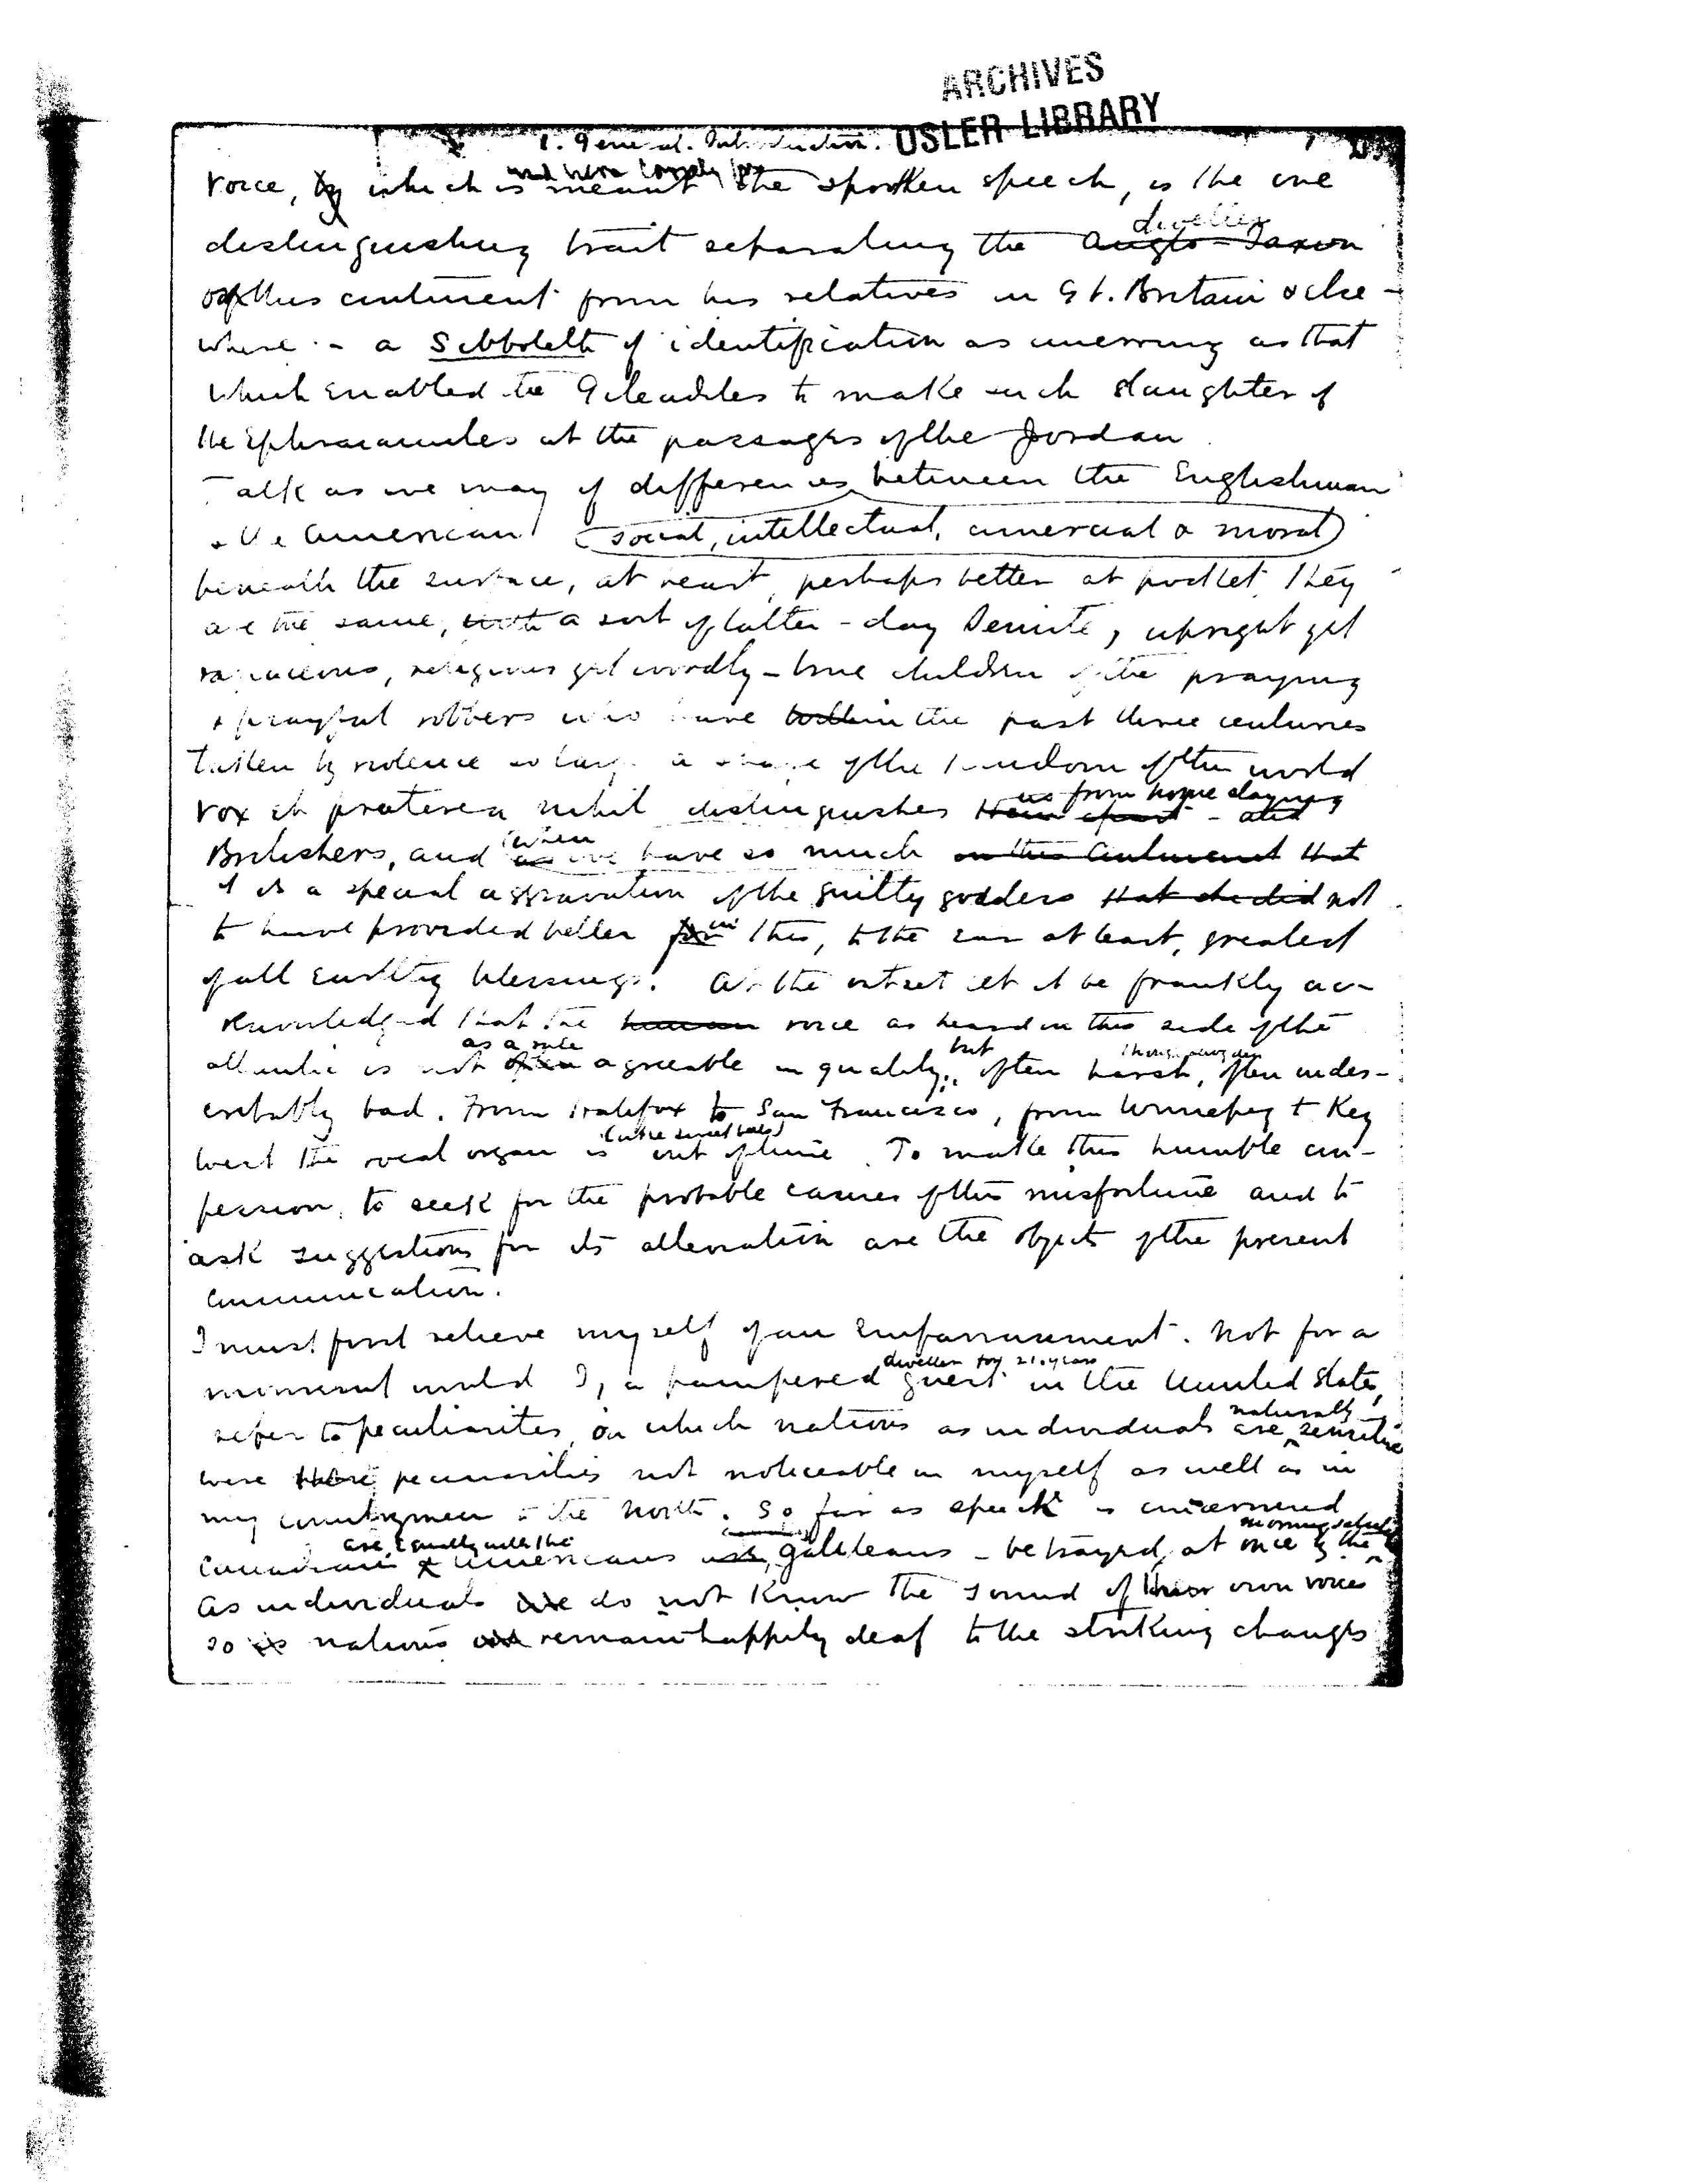 ARCHIVES
OSLER LIBRARY
1. General. Introduction.
Voice, by which is meant the spoken speech, is the one
dweller
distinguishing trait separating the Anglo-Saxon
of this continent from his relatives in Gt. Britain & else-
where - a Sibboleth of identification as unerring as that
which enabled the Gileadites to make such slaughter of
the Ephraimites at the passages of the Jordan.
Talk as we may of differences between the Englishman
& the American social, intellectual, commercial & moral
beneath the surface, at heart, perhaps better at pocket they
are the same, with a sort of latter-day Semite, upright yet
rapacious, religious yet worldly - true children of the praying
& prayful robbers who have within the past three centuries
taken by violence so large a share of the kingdom of this world
us from home staying
Vox et praeterea nihil distinguishes them apart - and
when
Britishers, and as we have so much on this continent that
it is a special aggravation of the guilty goddess that she did not
in
to have provided better for this, to the ear at least, greatest
of all earthly blessings. At the outset let it be frankly ac-
knowledged that the human voice as heard on this side of the
as a rule but
atlantic is not often agreeable in quality, often harsh, often indes-
cribably bad. From Halifax to San Francisco, from Winnepeg to Key
West the vocal organ is out of tune. To make this humble con-
fession, to seek for the probable causes of this misfortune and to
ask suggestions for its alleviation are the objects of the present
communication.
I must first relieve myself of an embarrassment. Not for a
dweller for 21 years
moment would I, a pampered guest in the United States,
naturally
refer to peculiarities on which nations as individuals are sensitive
were these peculiarities not noticeable in myself as well as in
my countrymen to the North. So far as speech is concerned
are, equally with the
Canadians & Americans are, Galileans - betrayed at once by the
As individuals we do not know the sound of their own voices
so is nations and remain happily deaf to the striking changes